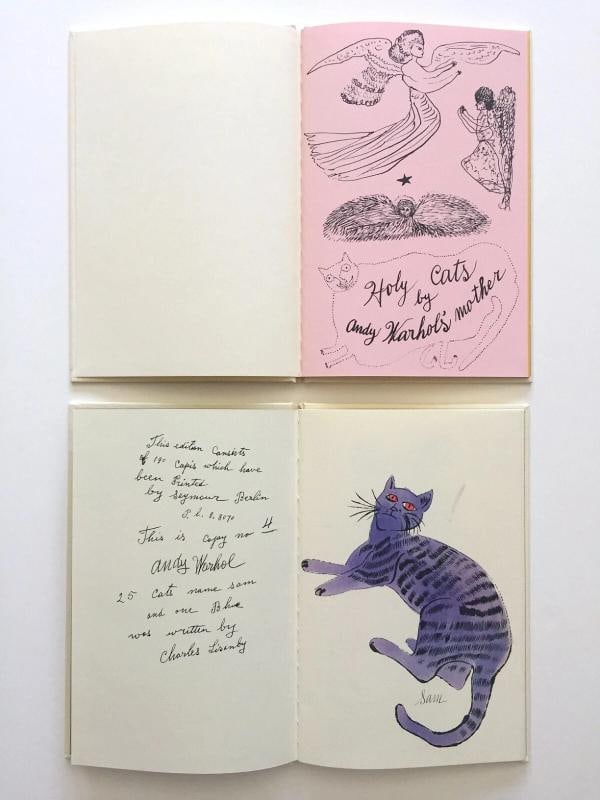 Holy Cats
by
Andy Warhol's mother
This edition Consists
of 190 Capis which have
been Printed
by Seymour Berlin
P. L. 8, 8070
This is copy no 4
Andy Warhol
25 Cats name sam
and one Blue
was written by
Charles Lisanby
Sam